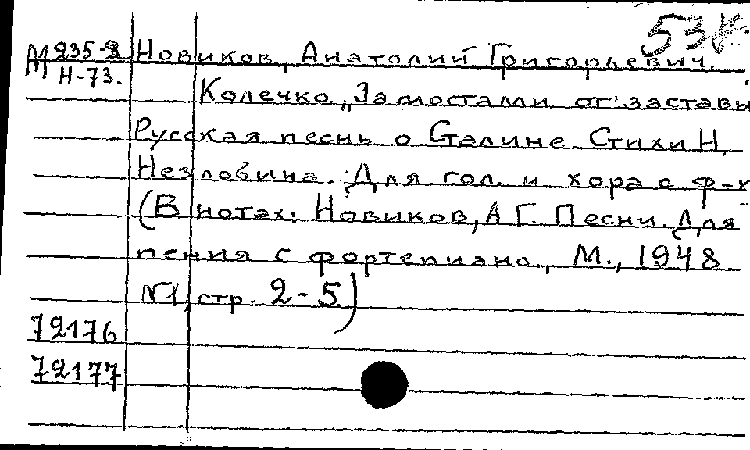 53
М 235-2 Новиков, Анатолий Григорьевич.
Н-73.
Колечко „За мостами от заставы
Русская песнь о Сталине. Стихи Н.
Незлобина. Для гол. и хора с ф-п
(В нотах: Новиков, А Г. Песни. Для
пения с фортепиано., М., 1948
№1, стр. 2-5)
72176
72177